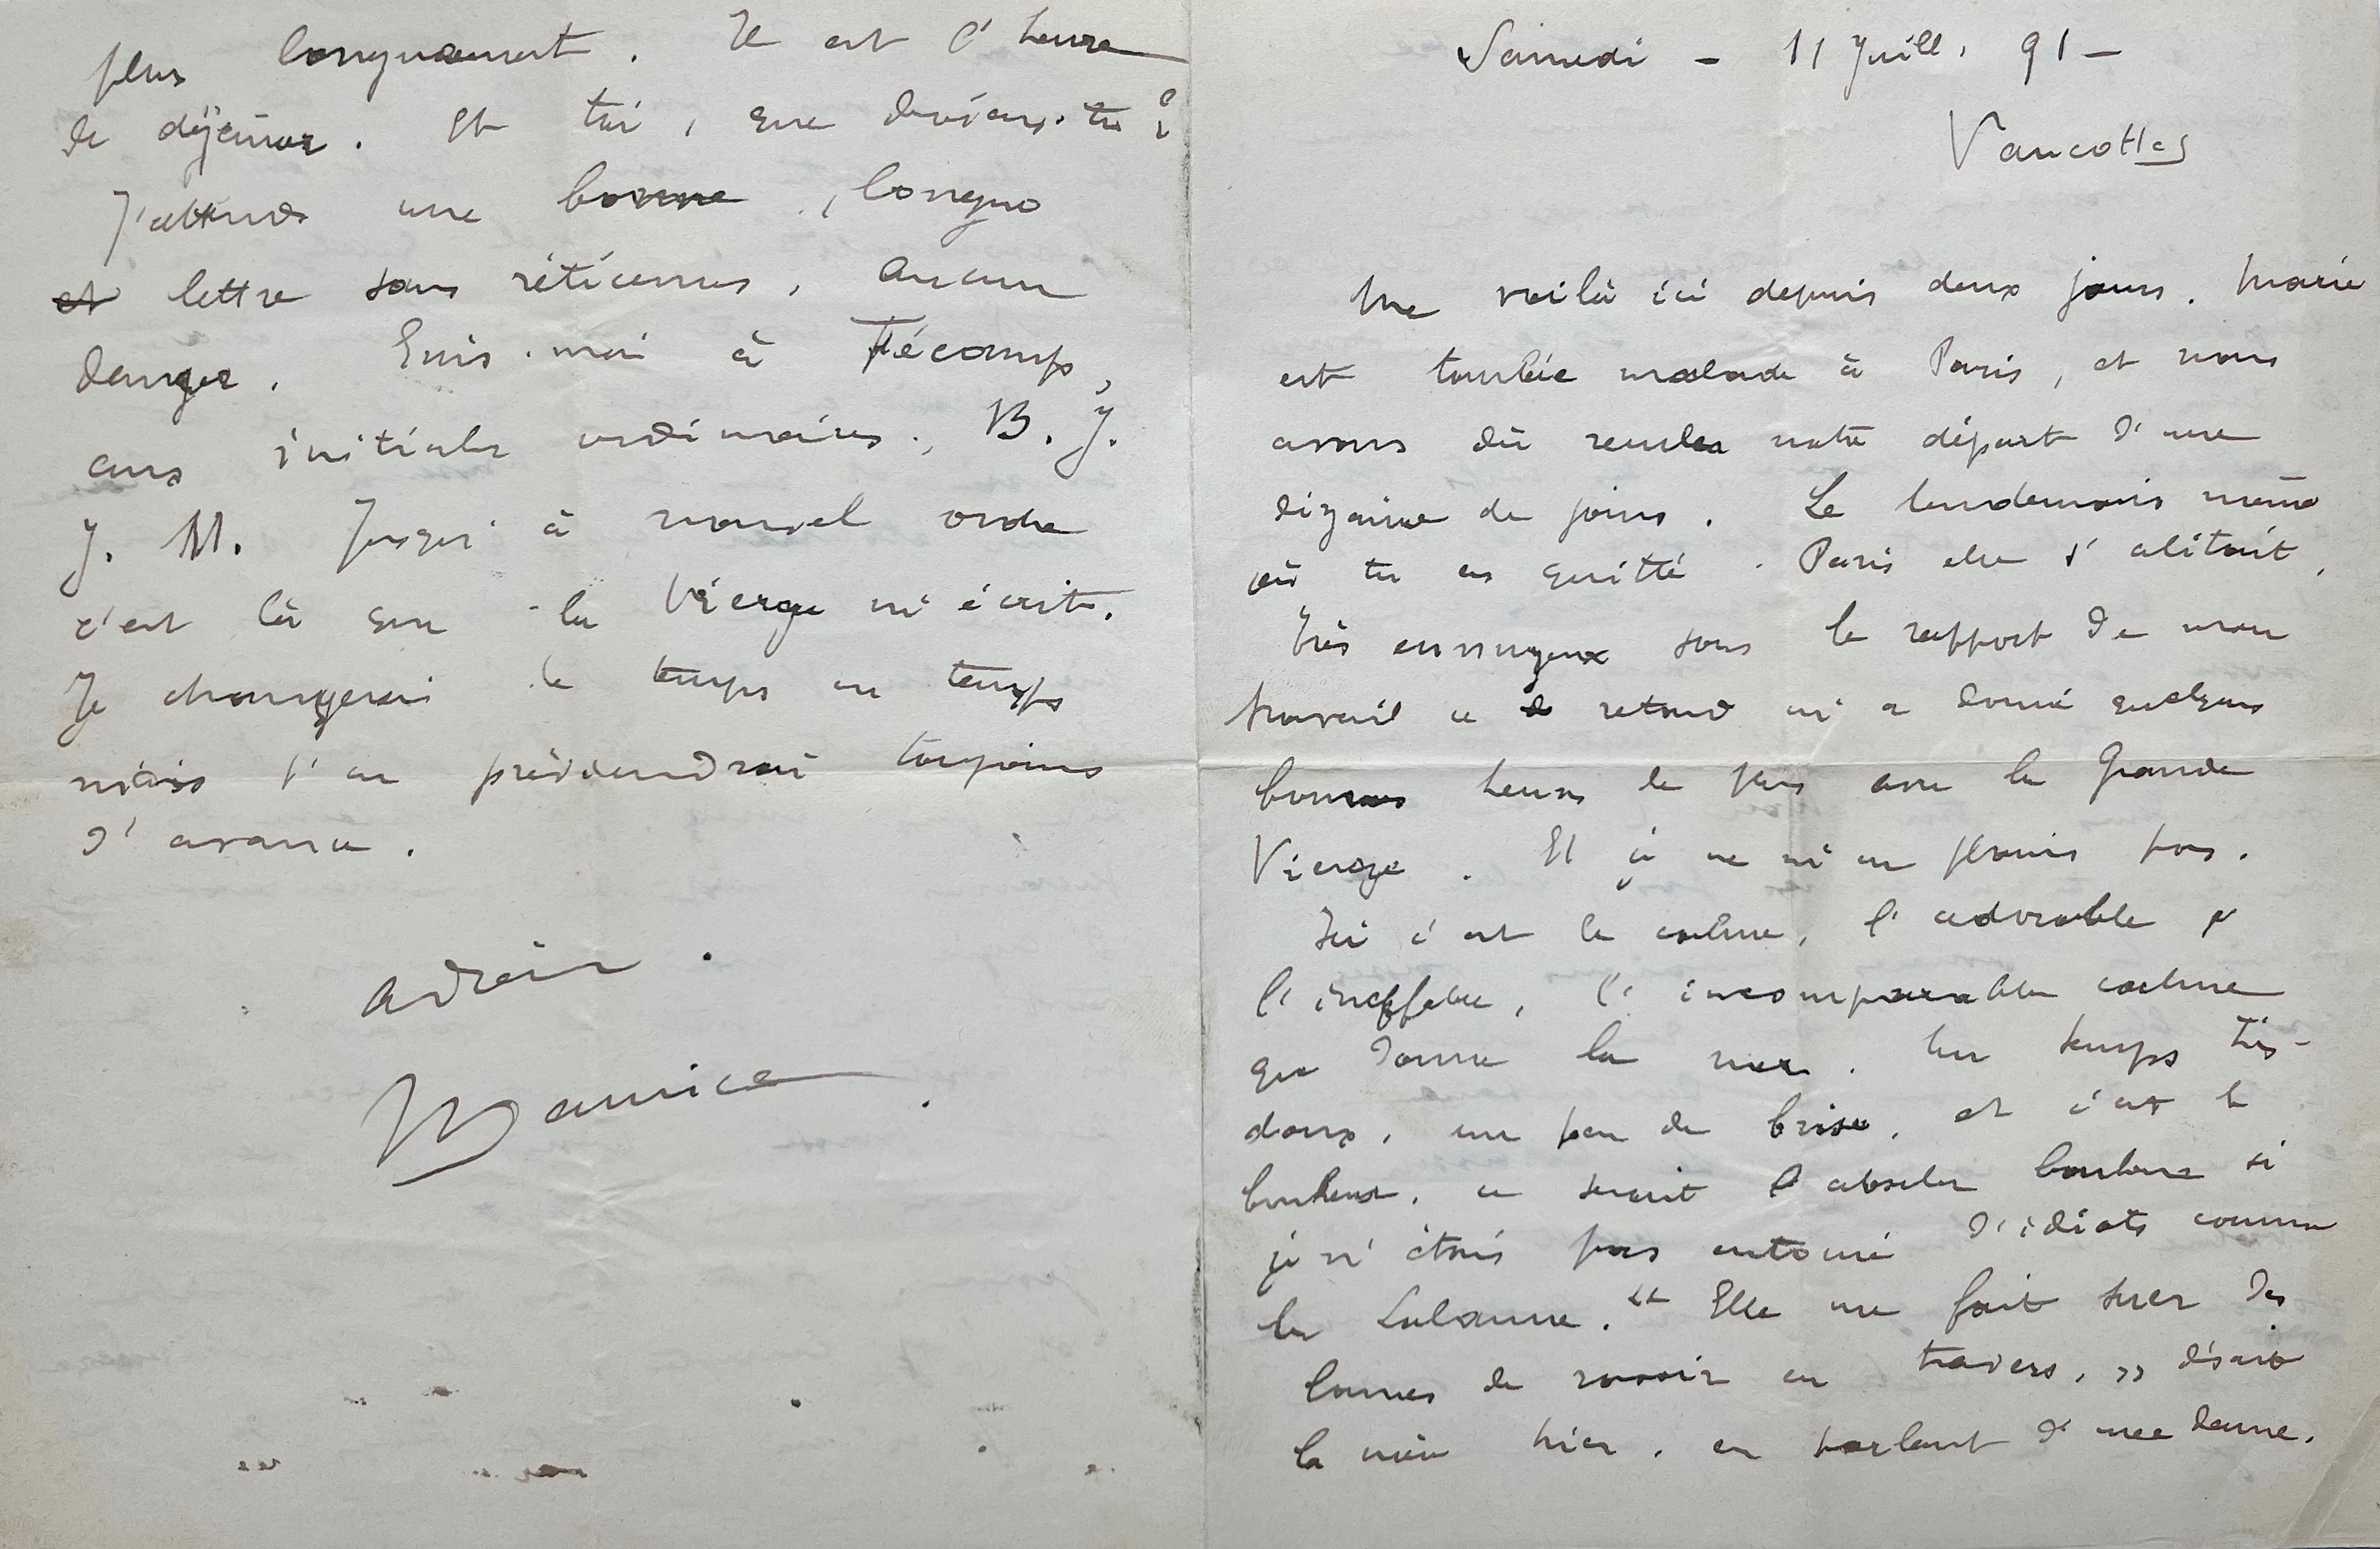 Samedi - 11 Juill. 91 -
Vaucottes
Me voilà ici depuis deux jours. Marie
est tombée malade à Paris, et nous
avons dû reculer notre départ d'une
dizaine de jours. Le lendemain même
où tu as quitté Paris elle s'alitait.
Très ennuyeux sous le rapport de mon
travail ce retard m'a donné quelques
bonnes heures de plus avec la Grande
Vierge. Et je ne m'en plains pas.
Ici c'est le calme, l'adorable
l'ineffable, l'incomparable calme
que donne la mer. Un temps très-
doux, un peu de brise, et c'est le
bonheur, ce serait l'absolu bonheur si
je n'étais pas entouré d'idiots comme
les Lalanne. "Elle me fait suer des
lames de rasoir en travers," disait
la mère hier, en parlant d'une dame.
plus longuement. Il est l'heure
de déjeuner. Et toi, que deviens-tu?
J'attends une bonne, longue
et lettre sans réticences, aucun
danger. Écris-moi à Fécamp,
aux initiales ordinaires, B. J.
J. M. Jusqu'à nouvel ordre
c'est là que la Vierge m'écrit.
Je changerai de temps en temps
mais t'en préviendrai toujours
d'avance.
Adieu.
Maurice